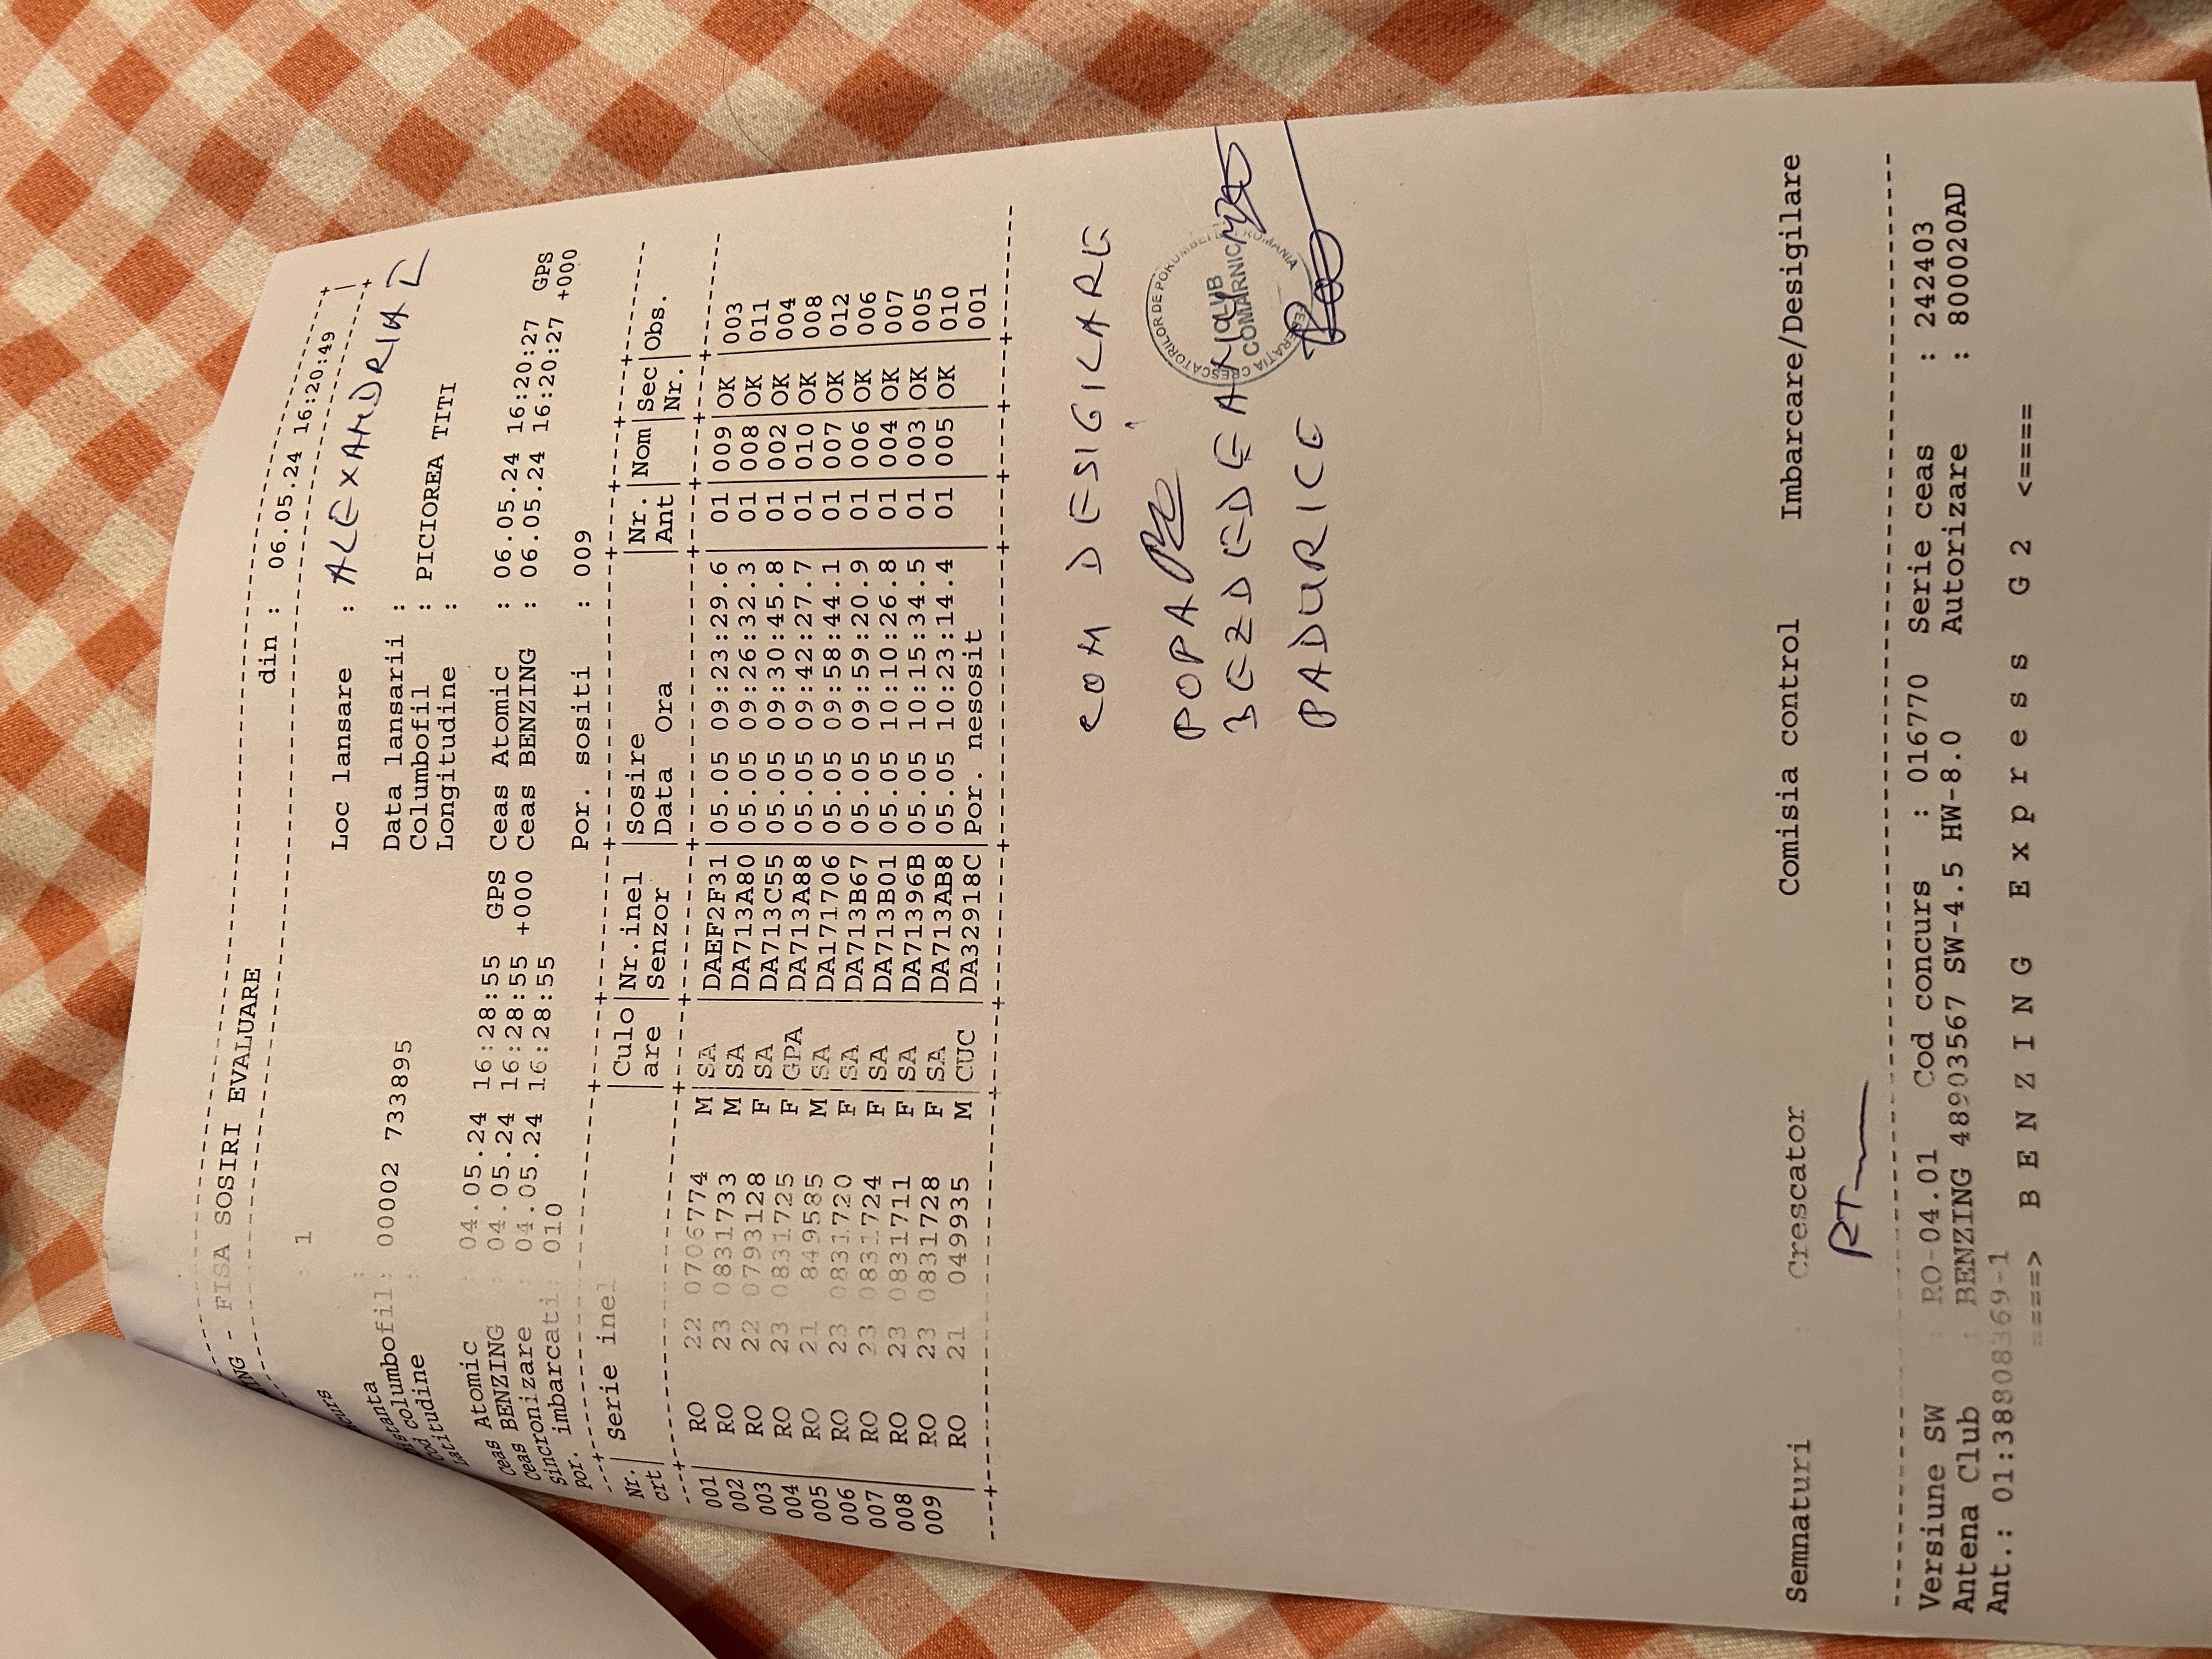 - FISA SOSIRI EVALUARE
din : 06.05.24 16:20:49
: 1
Loc lansare : ALEXANDRIA I
Data lansarii :
columbofil : 00002 733895 Columbofil : PICIOREA TITI
Longitudine :
Ceas Atomic : 04.05.24 16:28:55 GPS Ceas Atomic : 06.05.24 16:20:27 GPS
Ceas BENZING : 04.05.24 16:28:55 +000 Ceas BENZING : 06.05.24 16:20:27 +000
Sincronizare : 04.05.24 16:28:55
Por. imbarcati : 010 Por. sositi : 009
Nr. | Serie inel | Culo | Nr.inel | Sosire | Nr. | Nom | Sec | Obs.
crt | are | Senzor | Data Ora | Ant | Nr. |
001 RO 22 0706774 M SA DAEF2F31 05.05 09:23:29.6 01 009 OK 003
002 RO 23 0831733 M SA DA713A80 05.05 09:26:32.3 01 008 OK 011
003 RO 22 0793128 F SA DA713C55 05.05 09:30:45.8 01 002 OK 004
004 RO 23 0831725 F GPA DA713A88 05.05 09:42:27.7 01 010 OK 008
005 RO 21 849585 M SA DA171706 05.05 09:58:44.1 01 007 OK 012
006 RO 23 0831720 F SA DA713B67 05.05 09:59:20.9 01 006 OK 006
007 RO 23 0831724 F SA DA713B01 05.05 10:10:26.8 01 004 OK 007
008 RO 23 0831711 F SA DA71396B 05.05 10:15:34.5 01 003 OK 005
009 RO 23 0831728 F SA DA713AB8 05.05 10:23:14.4 01 005 OK 010
RO 21 049935 M CUC DA32918C Por. nesosit 001
COM DESIGILARE
POPA
BEZDEDEANU
PADURICE
CLUB
COMARNIC
Semnaturi : Crescator Comisia control Imbarcare/Desigilare
RT
Versiune SW : RO-04.01 Cod concurs : 016770 Serie ceas : 242403
Antena Club : BENZING 48903567 SW-4.5 HW-8.0 Autorizare : 800020AD
Ant.: 01:388083369-1
====> B E N Z I N G E x p r e s s G 2 <====